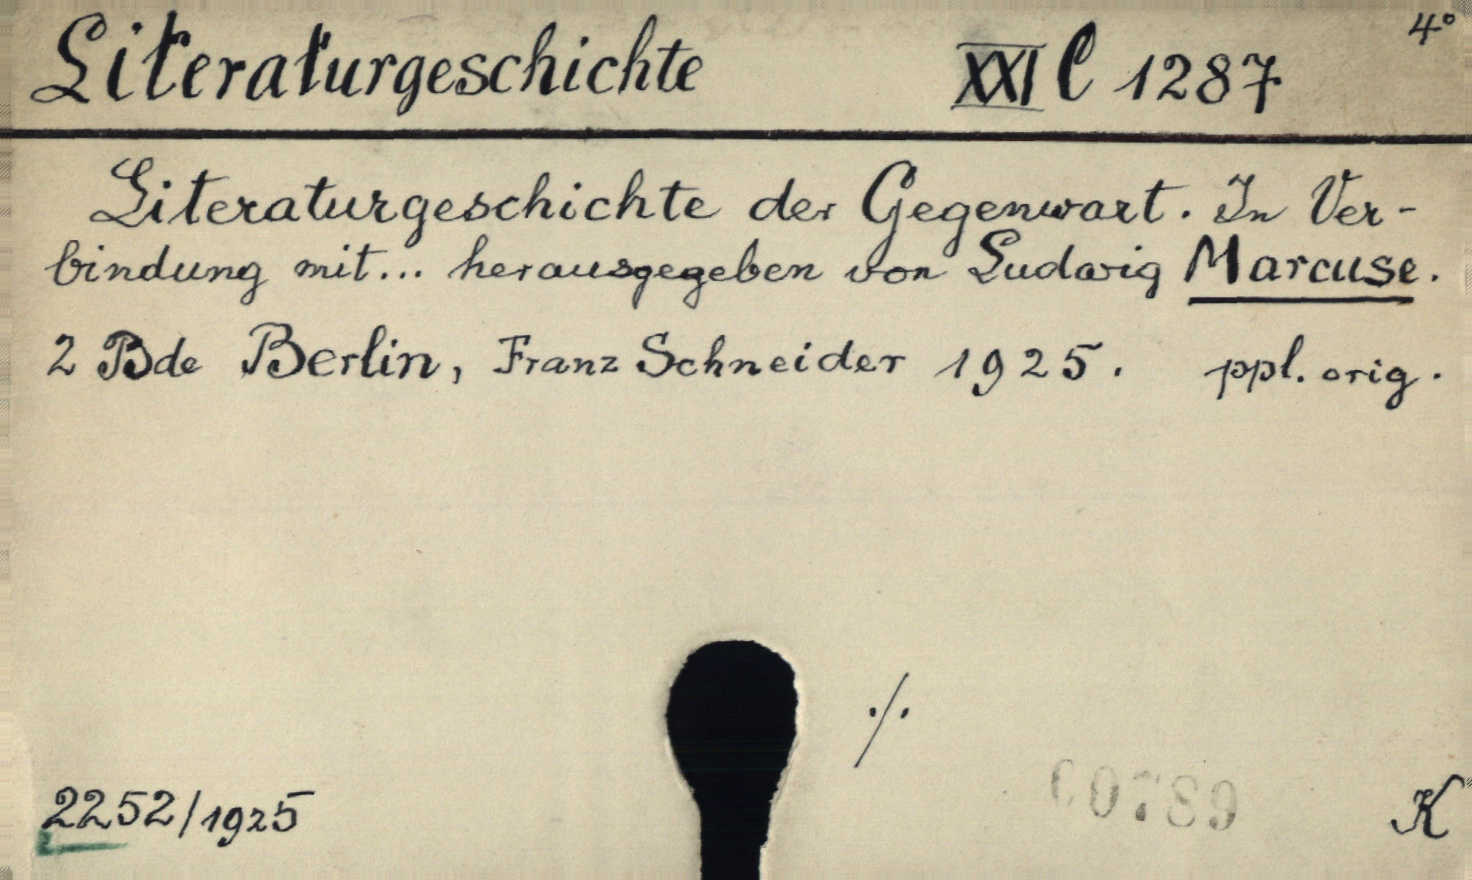 Literaturgeschichte XXI C 1287 4°
Literaturgeschichte der Gegenwart. In Ver-
bindung mit... herausgegeben von Ludwig Marcuse.
2 Bde Berlin, Franz Schneider 1925. ppl. orig.
./.
00789
2252/1925 K